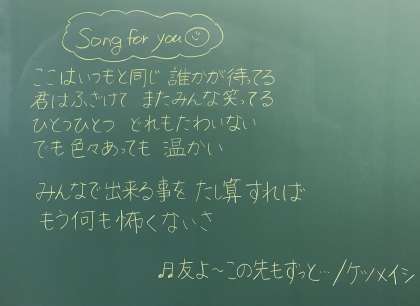 Song for you☺
ここはいつもと同じ 誰かが待ってる
君はふざけて またみんな笑ってる
ひとつひとつ どれもたわいない
でも色々あっても 温かい
みんなで出来る事を たし算すれば
もう何も怖くないさ
♫友よ〜この先もずっと…/ケツメイシ